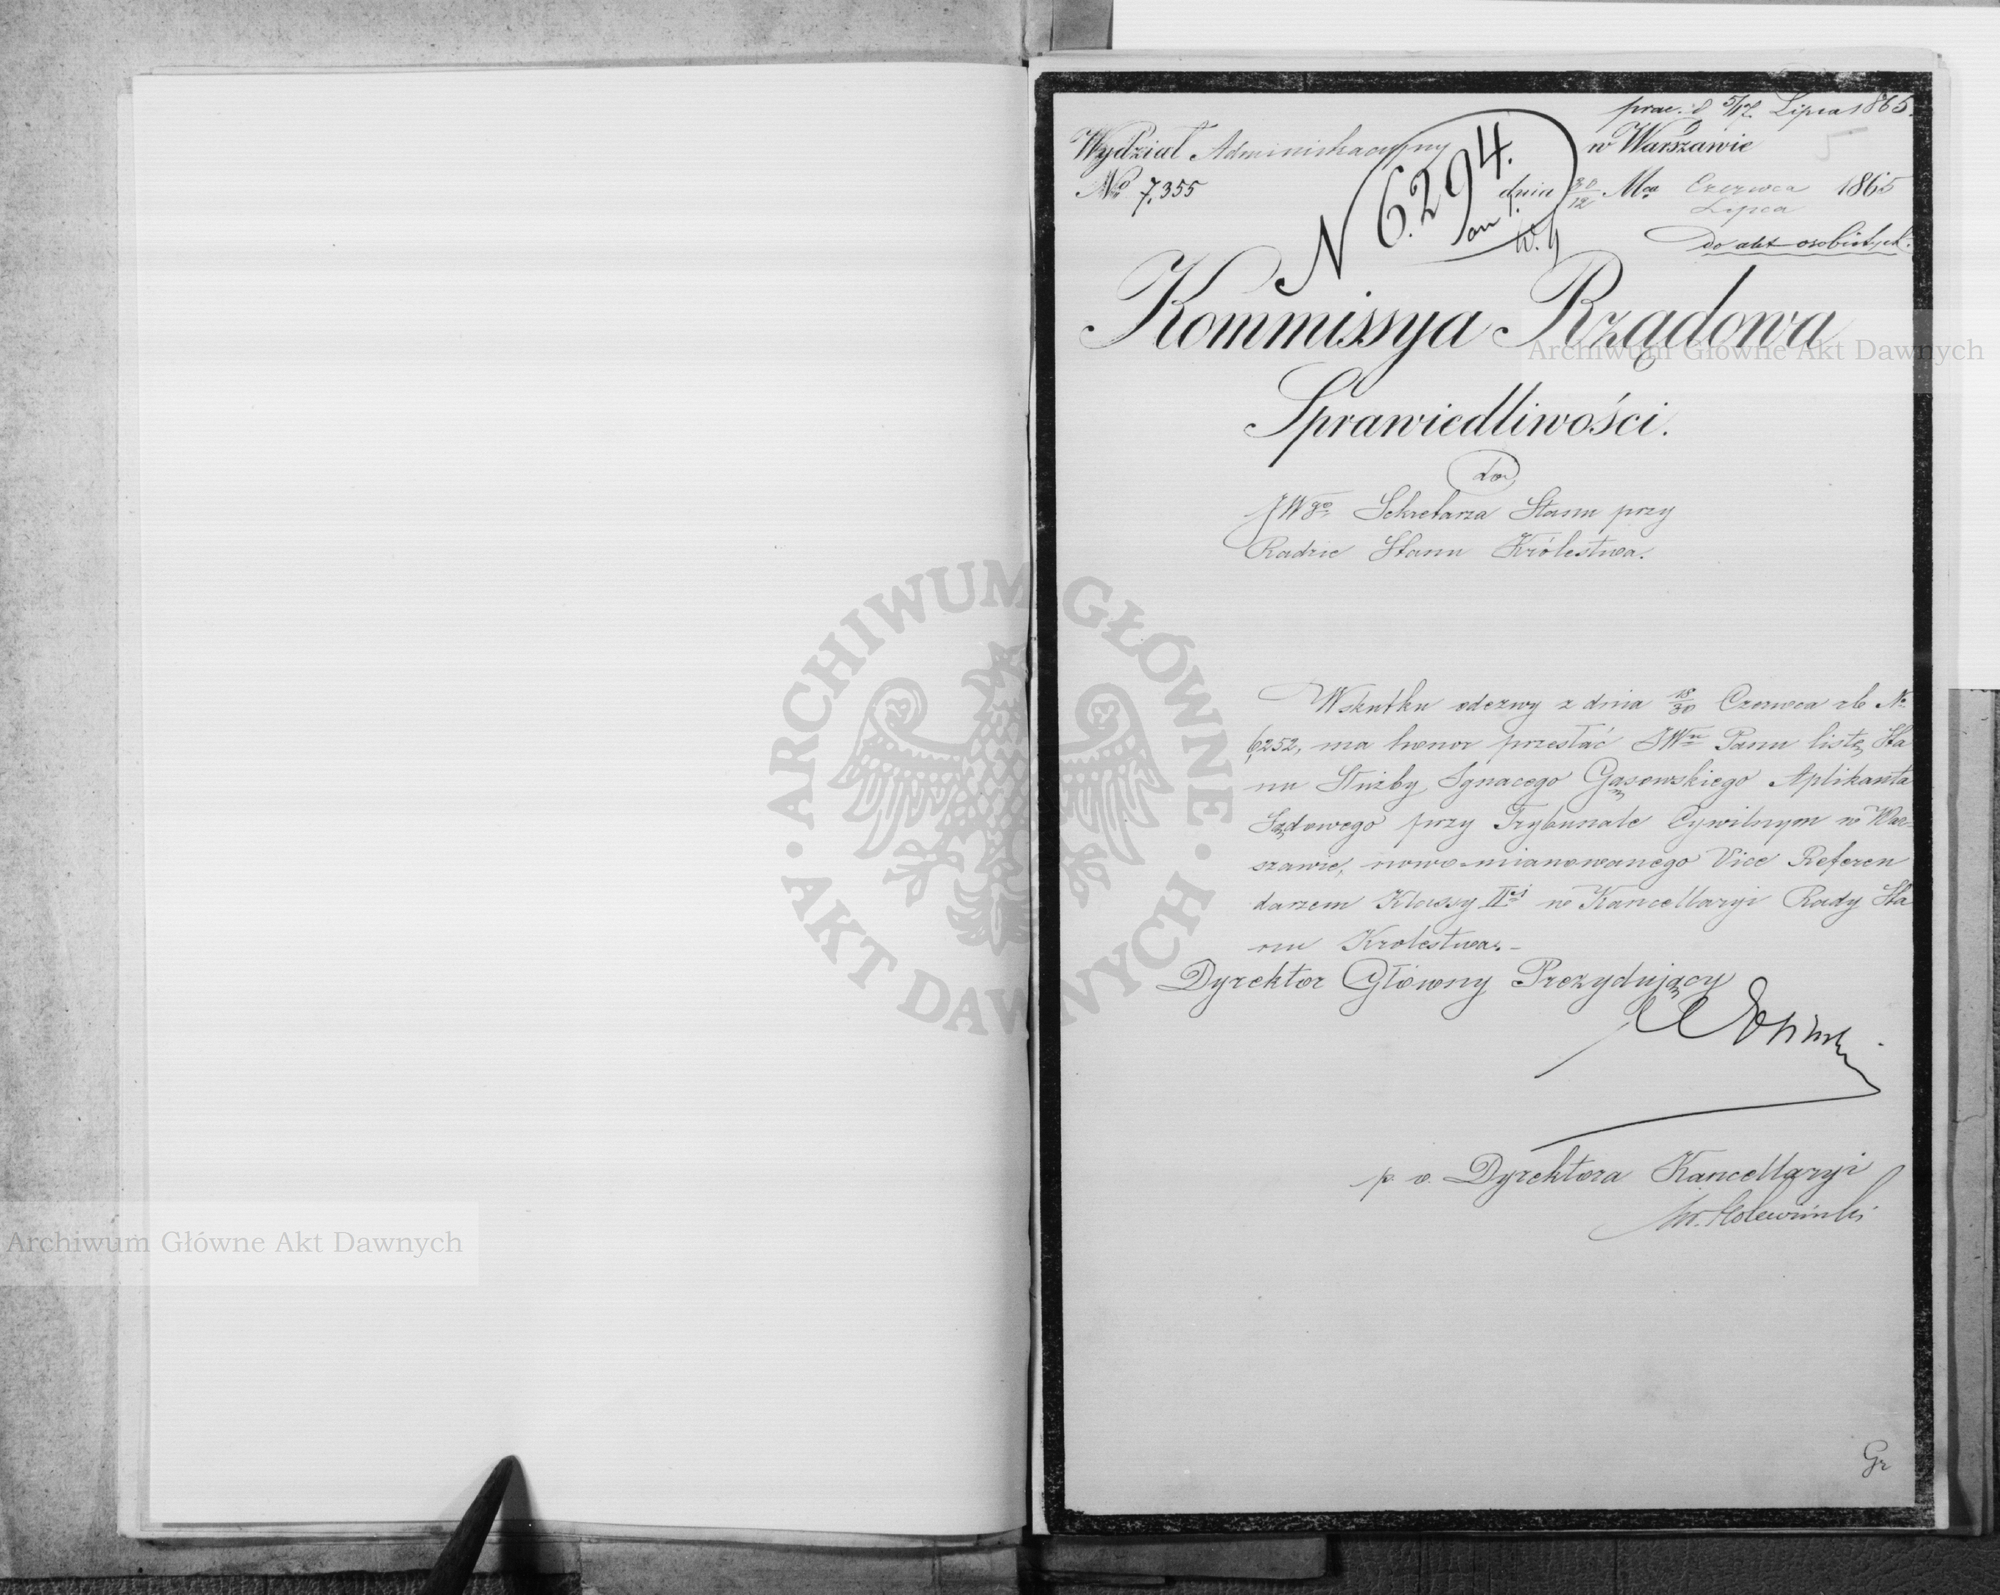 prae. d 5/17 Lipca 1865.
Wydział Administracyjny
w Warszawie
5
No 7,355
N 6.294.
dnia 30/12 Mca Czerwca Lipca 1865
do akt osobistych.
Kommissya Rządowa
Sprawiedliwości.
do
JWgo Sekretarza Stanu przy
Radzie Stanu Królestwa.
Wskutku odezwy z dnia 18/30 Czerwca rb No
6252, ma honor przesłać JWmu Panu listę Sta
nu Służby Ignacego Gąsowskiego Aplikanta
Sądowego przy Trybunale Cywilnym w War-
szawie, nowo mianowanego Vice Referen
darzem Klassy IIej w Kancellaryi Rady Sta
nu Krolestwa.-
Dyrektor Główny Prezydujący
p. o. Dyrektora Kancellaryi
Hołewiński
Gr
Archiwum Główne Akt Dawnych
Archiwum Główne Akt Dawnych
ARCHIWUM GŁÓWNE AKT DAWNYCH